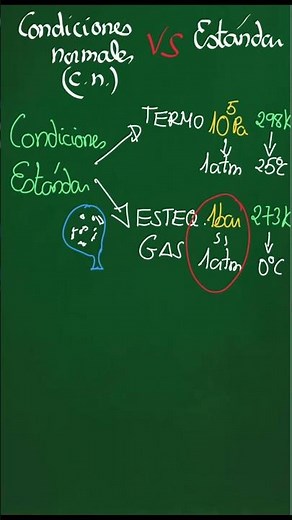 Condiciones normales (c.n.) VS Estándar
Condiciones Estándar
TERMO 10⁵ Pa 298K
1atm 25ºC
ESTEQ. 1bar 273K
GAS 1atm 0ºC